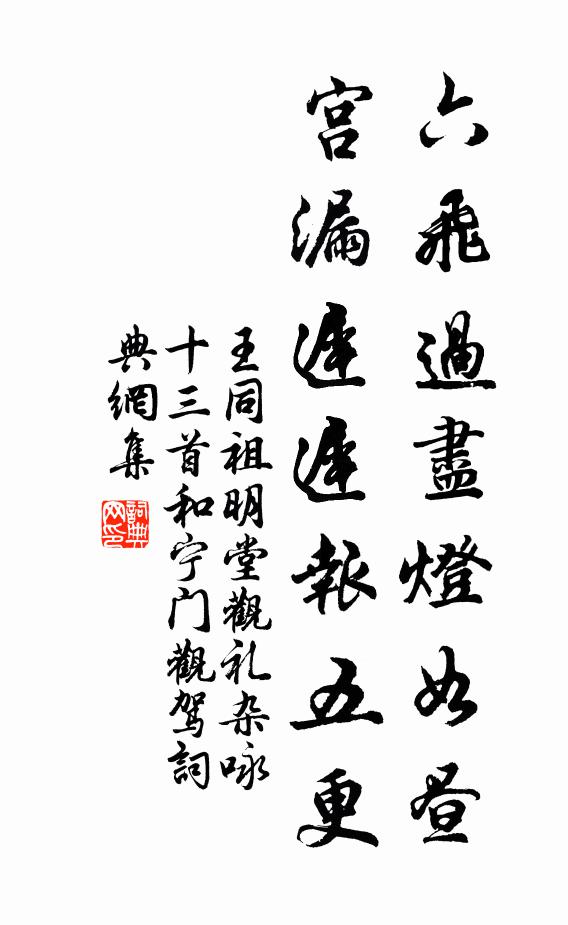 六飛過盡燈如晝
宮漏遲遲報五更
王同祖明堂觀礼杂咏
十三首和宁门觀驾詞
典網集
詞典網印